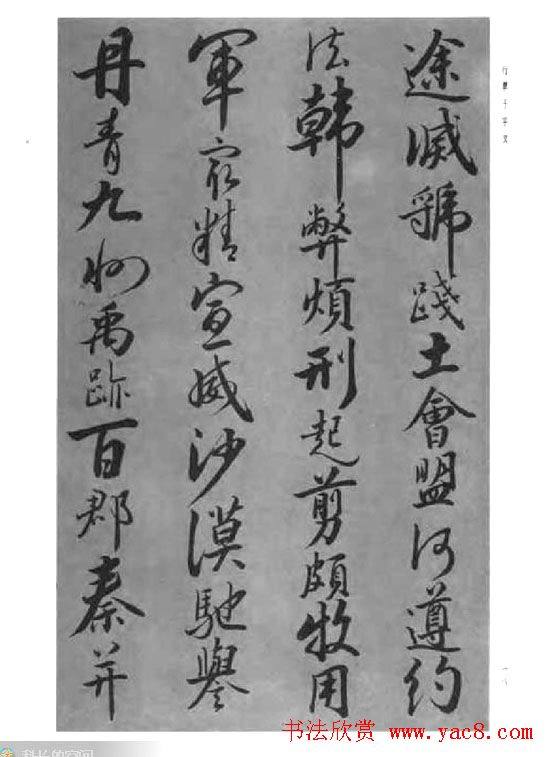 途滅虢踐土會盟何遵約
法韓弊煩刑起剪頗牧用
軍最精宣威沙漠馳譽
丹青九州禹跡百郡秦并
行書千字文
一八
书法欣赏 www.yac8.com
科长的空间